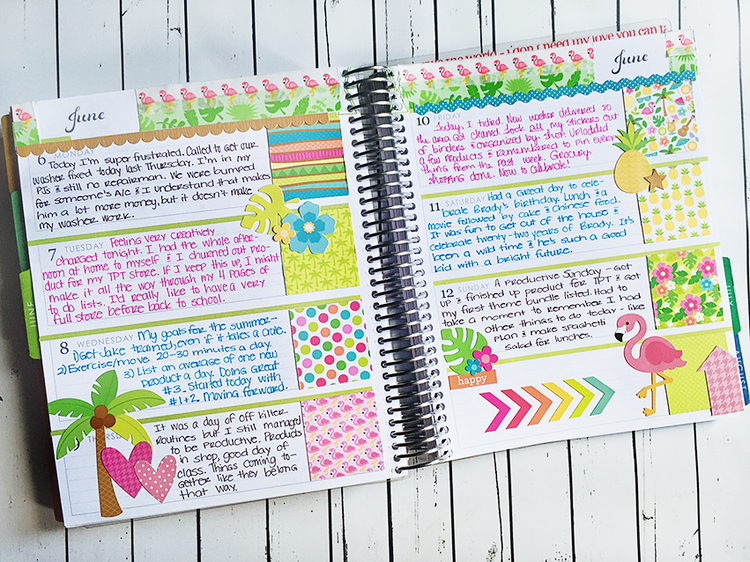 June
6 MONDAY
Today I'm super frustrated. Called to get our
washer fixed today last Thursday. I'm in my
PJs & still no repairman. We were bumped
for someone's A/C & I understand that makes
him a lot more money, but it doesn't make
my washer work.
7 TUESDAY
Feeling very creatively
charged tonight. I had the whole after-
noon at home to myself & I churned out pro-
duct for my TPT store. If I keep this up, I might
make it all the way through my 4 pages of
to do lists. I'd really like to have a very
full store before back to school.
8 WEDNESDAY
My goals for the summer -
1) Get Jake trained, even if it takes a crate.
2) Exercise/move 20-30 minutes a day.
3) List an average of one new
product a day. Doing great
#3. Started today with
#1+2. Moving forward.
THURSDAY
It was a day of off killer
routines but I still managed
to be productive. Products
in shop, good day of
class. Things coming to-
gether like they belong
that way.
- I don't need my love you can
June
10 FRIDAY
Today, I tidied. New washer delivered so
the area got cleaned. Took all my stickers out
of binders & organized by shop. Uploaded
a few products & remembered to pin every-
thing from the past week. Grocery
shopping done. Now to celebrate!
11 SATURDAY
Had a great day to cele-
brate Brady's birthday. Lunch & a
movie followed by cake & Chinese food.
It was fun to get out of the house &
celebrate twenty-two years of Brady. It's
been a wild time & he's such a good
kid with a bright future.
12 SUNDAY
A productive Sunday - Got
up & finished up product for TPT & Got
my first theme bundle listed. Had to
take a moment to remember I had
other things to do today - like
plan & make spaghetti
salad for lunches.
happy
JUNE